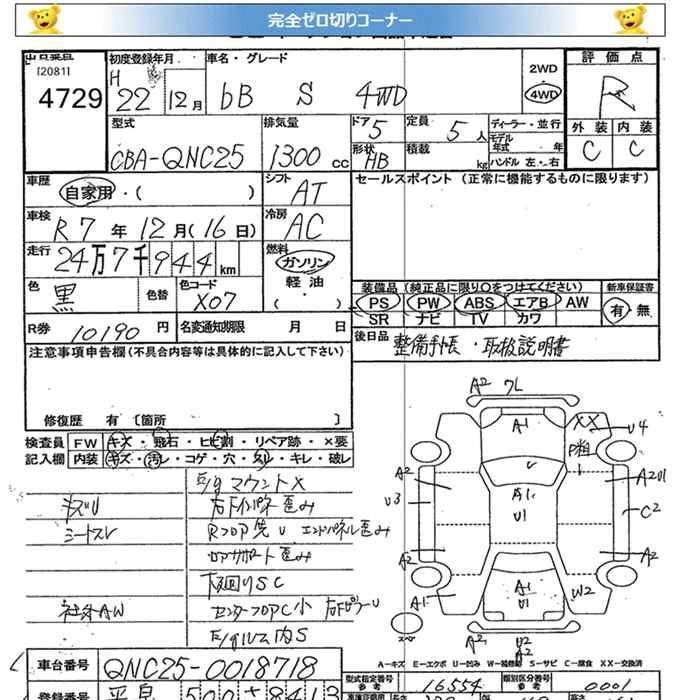 完全ゼロ切りコーナー
出品番号 初度登録年月 車名・グレード 2WD 評価点
[2081] H 4WD
4729 22年 12月 bB S 4WD R
型式 排気量 ドア 5 定員 5人 ディーラー・並行 外装 内装
モデル年式 年
CBA-QNC25 1300cc 形状 HB 積載 kg ハンドル 左・右 C C
車歴 シフト セールスポイント (正常に機能するものに限ります)
自家用・( ) AT
車検 冷房
R7年 12月(16日) AC
走行 燃料
24万7千944km ガソリン
色 色替 色コード 軽油 装備品 (純正品に限り○をつけてください) 新車保証書
黒 X07 ・( ) PS PW ABS エアB AW 有・無
SR ナビ TV カワ
R券 10190円 名変通知期限 月 日 後日品
整備手帳・取扱説明書
注意事項申告欄(不具合内容等は具体的に記入して下さい)
修復歴 有 〔箇所 〕
検査員 FW キズ・飛石・ヒビ割・リペア跡・×要
記入欄 内装 キズ・汚レ・コゲ・穴・スレ・キレ・破レ
E/gマウントX
キズU 右下インパネ歪み
シートスレ RフロアU エンドパネル歪み
コアサポート歪み
下廻りSC
社外AW センターフロアC小 右ピラーU
E/gルーム内S
A2 フL
A1 XX U4
P粗
A2 U A2U1
U3 A1 U1 C2
A2 A2
A1 A1 U1 W2
スペアー A2 U2 A2
A-キズ E-エクボ U-凹み W-補修跡 S-サビ C-腐食 XX-交換済
車台番号 QNC25-0018718
型式指定番号 参考 16554 類別区分番号 参考 0001
登録番号